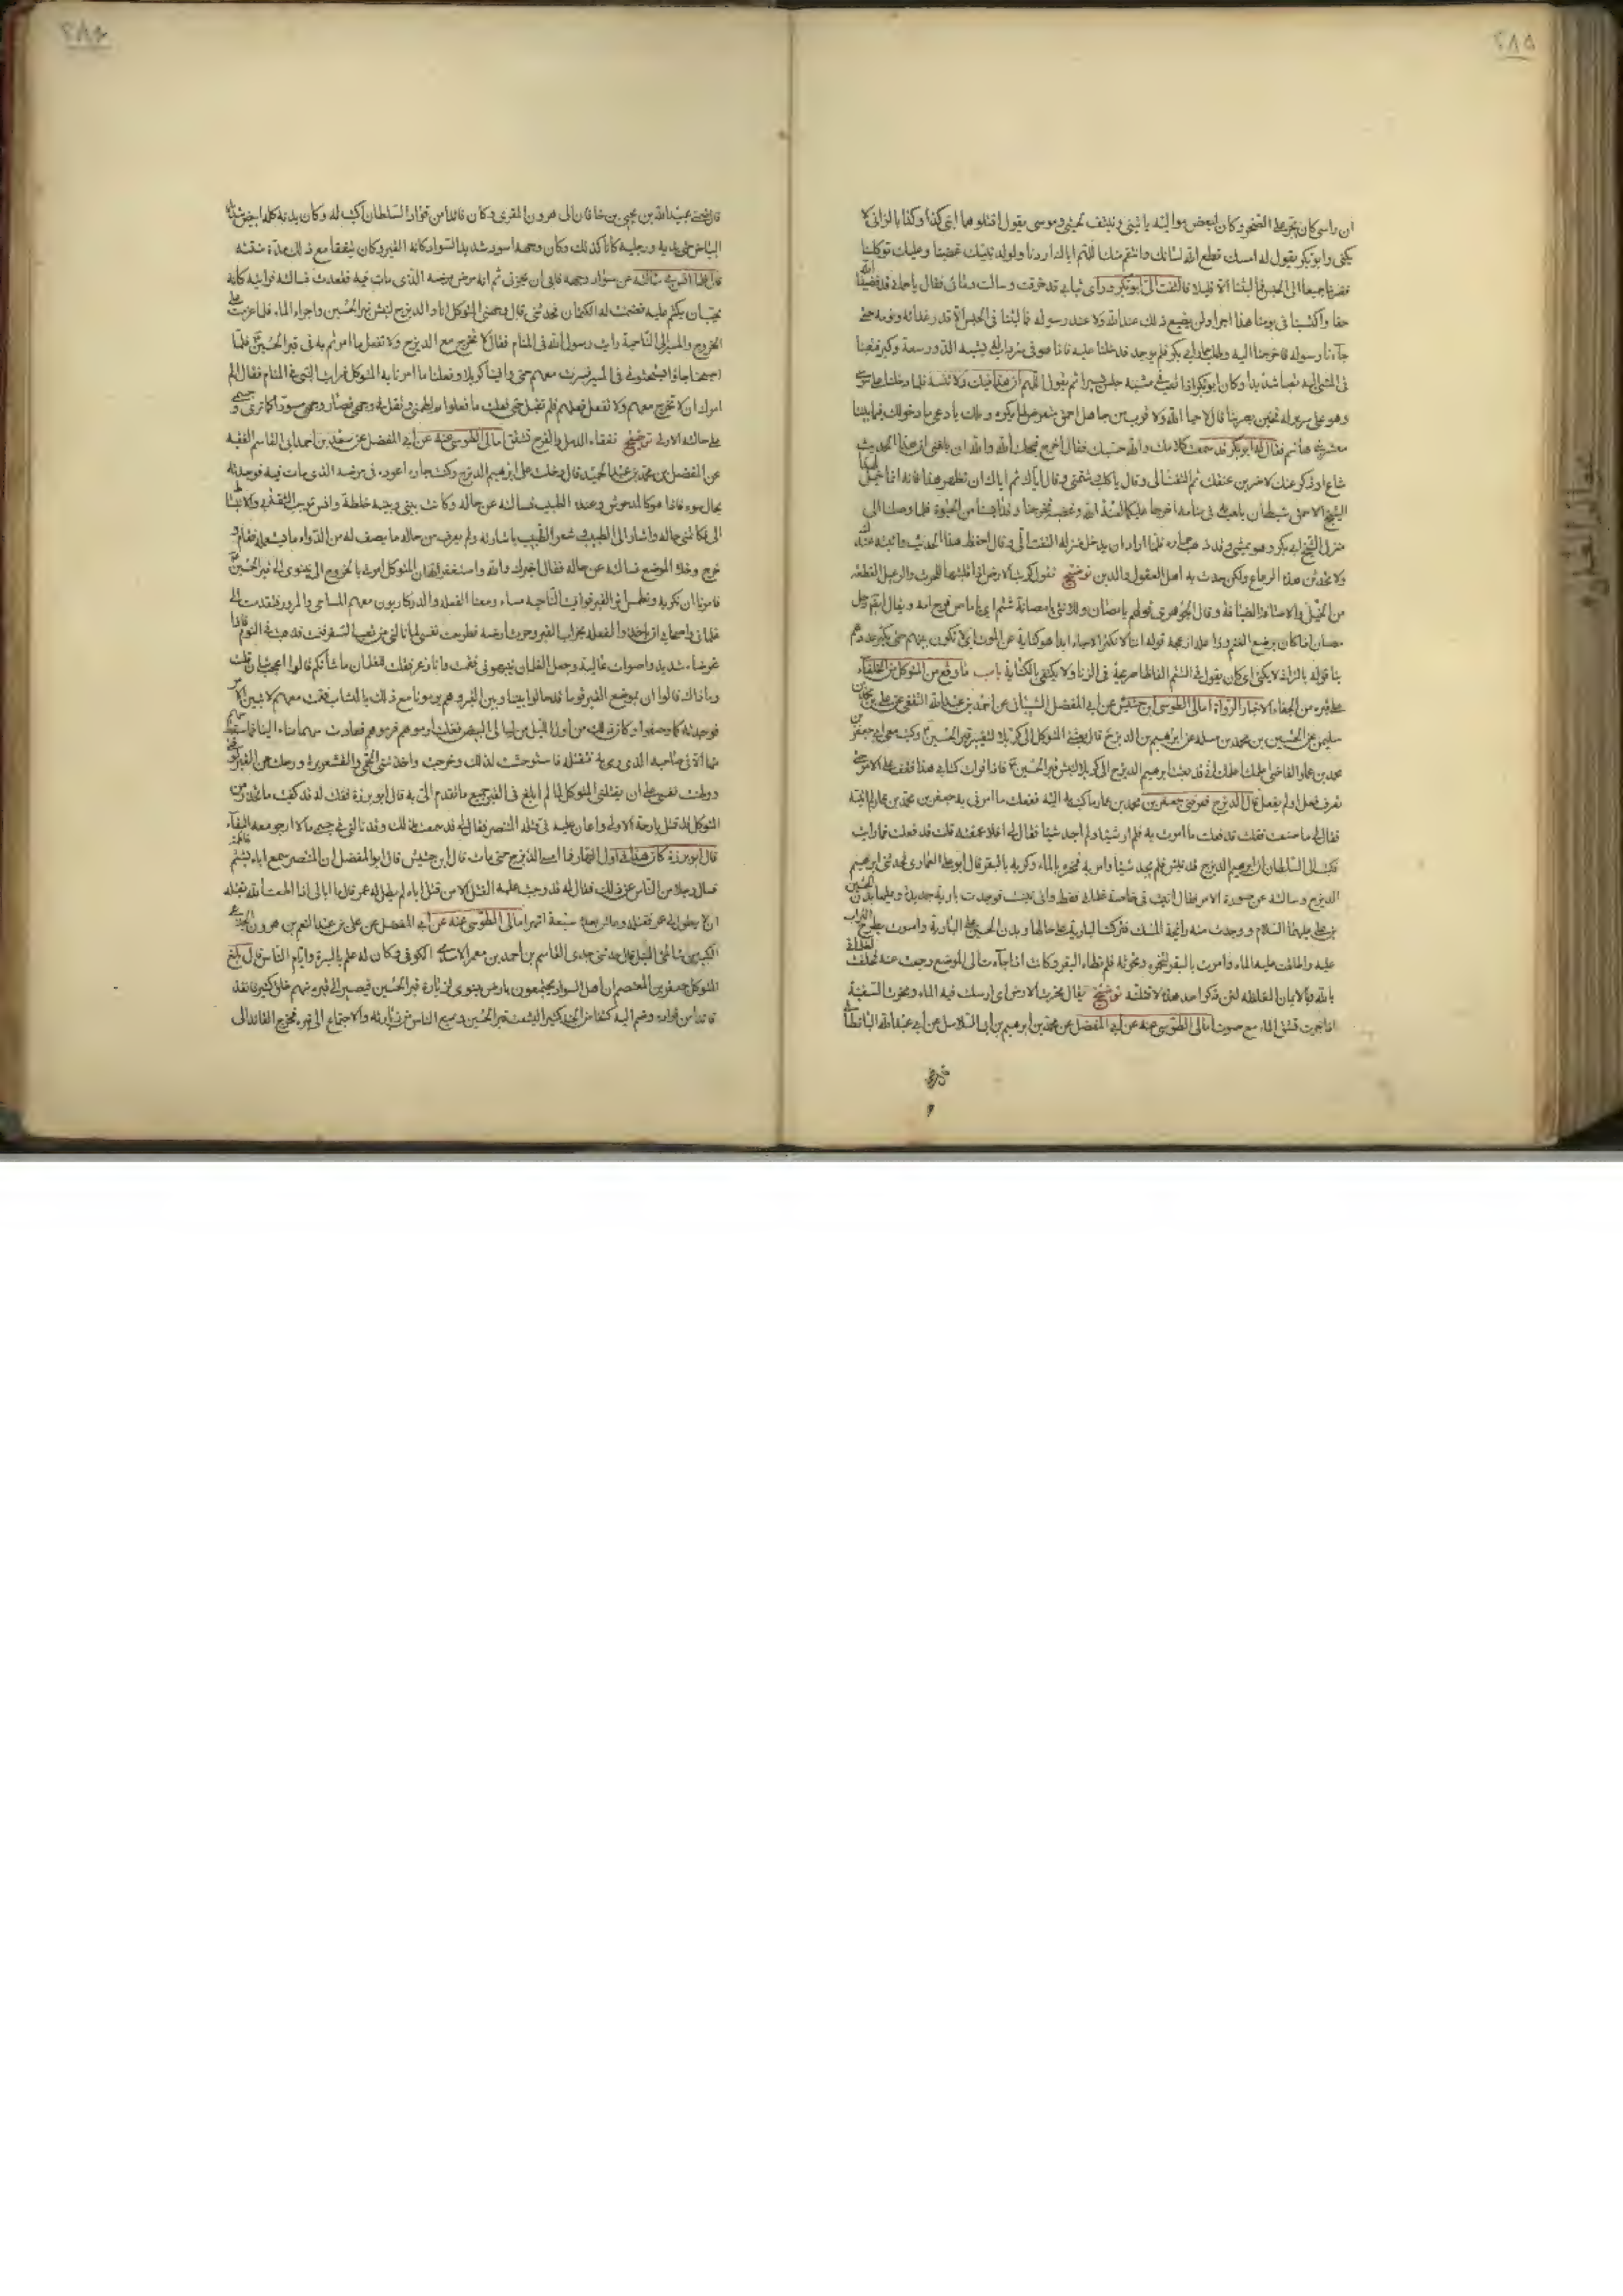 ٢٨٥
ان راسي كان يجر على الصخر وكان بعض مواليه يا
يكنى وابو بكر يقول له امسك قطع الله لسانك وانتقم منك اللهم اياك اردنا ولولد نبيك غضبنا وعليك توكلنا
فصرنا جميعا الى الحبس فما لبثنا الا قليلا فالتفت الى ابو بكر وراى ثيابي قد خرقت وسالت دمائي فقال يا حماني قد قضينا لله
حقا واكتسبنا في يومنا هذا اجرا ولن يضيع ذلك عند الله ولا عند رسوله فما لبثنا في الحبس الا قدر غدائه ونومه حتى
جاءنا رسوله فاخرجنا اليه وطلب حمار ابي بكر فلم يوجد فدخلنا عليه فاذا هو في سرداب له يشبه الدور سعة وكبرا فتعبنا
في المشي اليه تعبا شديدا وكان ابو بكر اذا تعب في مشيه جلس يسيرا ثم يقول اللهم ان هذا فيك فلا تنسه فلما دخلنا على موسى
وهو على سرير له فحين بصر بنا قال لا حيا الله ولا قرب من جاهل احمق يتعرض لما يكره ويلك يا دعي ما دخولك فيما بيننا
معشر بني هاشم فقال له ابو بكر قد سمعت كلامك والله حسبك فقال له اخرج قبحك الله والله ان بلغني ان هذا الحديث
شاع او ذكر عنك لاضربن عنقك ثم التفت الي وقال يا كلب وشتمني وقال اياك ثم اياك ان تظهر هذا فانه انما خيل لهذا
الشيخ الاحمق شيطان يلعب به في منامه اخرجا عليكما لعنة الله وغضبه فخرجنا وقد ايسنا من الحيوة فلما وصلنا الى
منزل الشيخ ابي بكر وهو يمشي وقد ذهب حماره فلما اراد ان يدخل منزله التفت الي وقال احفظ هذا الحديث واثبته عندك
ولا تحدثن هذه الرعاع ولكن حدث به اهل العقول والدين توضيح تقول كربت الارض اذا قلبتها للحرث والرعيل القطعة
من الخيل والاستاه الضيافة وقال الجوهري قولهم يا مصان وللانثى يا مصانة شتم اي يا ماص فرج امه ويقال ايضا رجل
مصان اذا كان يرضع الغنم
يا قوله بالزاني لا يكنى اي كان يقول في الشتم الفاظا صريحة في الزنا ولا يكتفي بالكناية باب ما وقع من المتوكل من الخلفاء
على قبره من الجفاء الاخبار الرواة امالي الطوسي ابن حشيش عن ابي المفضل الشيباني عن احمد بن عبد الله الثقفي عن علي بن محمد بن
سليمن عن الحسين بن محمد بن مسلمة عن ابرهيم بن الديزج قال بعثني المتوكل الى كربلا لتغيير قبر الحسين وكتب معي الى جعفر بن
محمد بن عمار القاضي اعلمك اني قد بعثت ابرهيم الديزج الى كربلا لنبش قبر الحسين فاذا قرات كتابي هذا فقف على الامر حتى
تعرف فعل او لم يفعل قال الديزج فعرفني جعفر بن محمد بن عمار ما كتب به اليه ففعلت ما امرني به جعفر بن محمد بن عمار ثم اتيته
فقال لي ما صنعت فقلت قد فعلت ما امرت به فلم ار شيئا ولم اجد شيئا فقال لي افلا عمقته قلت قد فعلت فما رايت
فكتب الى السلطان ان ابرهيم الديزج قد نبش فلم يجد شيئا وامرته فمخره بالماء وكربه بالبقر قال ابو علي العماري فحدثني ابرهيم
الديزج وسالته عن صورة الامر فقال اتيت في خاصة غلماني فقط واني نبشت فوجدت بارية جديدة وعليها بدن الحسين
بن علي عليهما السلام ووجدت منه رائحة المسك فتركت البارية على حالها وبدن الحسين على البارية وامرت بطرح التراب
عليه واطلقت عليه الماء وامرت بالبقر لتمخره وتحرثه فلم تطاه البقر وكانت اذا جاءت الى الموضع رجعت عنه فحلفت لغلماني
بالله وبالايمان المغلظة لئن ذكر احد هذا لاقتلنه توضيح يقال مخرت الارض اي ارسلت فيه الماء ومخرت السفينة
اذا جرت تشق الماء مع صوت امالي الطوسي عنه عن ابي المفضل عن محمد بن ابرهيم بن ابي السلاسل عن ابي عبد الله الباقطاني
٢٨٦
قال ضمني عبيد الله بن يحيى بن خاقان الى هرون المعري وكان قائدا من قواد السلطان اكتب له وكان بدنه كله ابيض شديد
البياض حتى يديه ورجليه كانا كذلك وكان وجهه اسود شديد السواد كانه القير وكان يتفقا مع ذلك مدة منتنة
قال فلما انس بي سالته عن سواد وجهه فابى ان يخبرني ثم انه مرض مرضه الذي مات فيه فقعدت فسالته فرايته كانه
يحب ان يكتم عليه فضمنت له الكتمان فحدثني قال وجهني المتوكل انا والديزج لنبش قبر الحسين واجراء الماء عليه فلما عزمت
الخروج والمسير الى الناحية رايت رسول الله في المنام فقال لا تخرج مع الديزج ولا تفعل ما امرتم به في قبر الحسين فلما
اصبحنا جاؤا يستحثوني في المسير فسرت معهم حتى وافينا كربلا وفعلنا ما امرنا به المتوكل فرايت النبي في المنام فقال الم
امرك ان لا تخرج معهم ولا تفعل فعلهم فلم تقبل حتى فعلت ما فعلوا ثم لطمني وتفل في وجهي فصار وجهي مسودا كما ترى وجسمي
على حالته الاولى توضيح تفقاء الدمل والقرح تشقق امالي الطوسي عنه عن ابي المفضل عن سعيد بن احمد ابي القاسم الفقيه
عن الفضل بن محمد بن عبد الحميد قال دخلت على ابرهيم الديزج وكنت جاره اعوده في مرضه الذي مات فيه فوجدته
بحال سوء فاذا هو كالمدهوش وعنده الطبيب فسالته عن حاله وكانت بيني وبينه خلطة وانس توجب الثقة بي والانبساط
الي فكاتمني حاله واشار الى الطبيب فشعر الطبيب باشارته ولم يعرف من حاله ما يصف له من الدواء ما يستعمله فقام و
خرج وخلا الموضع فسالته عن حاله فقال اخبرك والله واستغفر الله ان المتوكل امرني بالخروج الى نينوى الى قبر الحسين
فامرنا ان نكربه ونطمس اثر القبر فوافيت الناحية مساء ومعنا الفعلة والدركاريون معهم المساحي والمرور فتقدمت الى
غلماني واصحابي ان ياخذوا الفعلة بخراب القبر وحرث ارضه فطرحت نفسي لما نالني من تعب السفر فنمت فذهب بي النوم فاذا
ضوضاء شديد واصوات عالية وجعل الغلمان ينبهوني فقمت وانا ذعر فقلت للغلمان ما شانكم قالوا اعجب شان قلت
وما ذاك قالوا ان بموضع القبر قوما قد حالوا بيننا وبين القبر وهم يرمونا مع ذلك بالنشاب فقمت معهم لاتبين الامر
فوجدته كما وصفوا وكان ذلك من اول الليل من ليالي البيض فقلت ارموهم فرموهم فعادت سهامنا الينا فما سقط سهم
منا الا في صاحبه الذي رمى به فقتله فاستوحشت لذلك وجزعت واخذتني الحمى والقشعريرة ورحلت عن القبر لوقتي
ووطنت نفسي على ان يقتلني المتوكل لما لم ابلغ في القبر جميع ما تقدم الي به قال ابو برزة فقلت له قد كفيت ما تحذر من
المتوكل قد قتل بارحة الاولى واعان عليه في قتله المنتصر فقال لي قد سمعت بذلك وقد نالني في جسمي ما لا ارجو معه البقاء
قال ابو برزة كان هذا في اول النهار فما امسى الديزج حتى مات قال ابن حشيش قال ابو المفضل ان المنتصر سمع اباه يشتم فاطمة
فسال رجلا من الناس عن ذلك فقال له قد وجب عليه القتل الا من قتل اباه لم يطل له عمر قال ما ابالي اذا اطعت الله بقتله
ان لا يطول لي عمر فقتله وعاش بعده سبعة اشهر امالي الطوسي عنه عن ابي المفضل عن علي بن عبد المنعم بن هرون الخديجي
الكبير من شاطئ النيل قال حدثني جدي القاسم بن احمد بن معمر الاسدي الكوفي وكان له علم بالسيرة وايام الناس قال بلغ
المتوكل جعفر بن المعتصم ان اهل السواد يجتمعون بارض نينوى لزيارة قبر الحسين فيصير الى قبره منهم خلق كثير فانفذ
قائدا من قواده وضم اليه كنفا من الجند كثيرا ليشعث قبر الحسين ويمنع الناس من زيارته والاجتماع الى قبره فخرج القائد الى